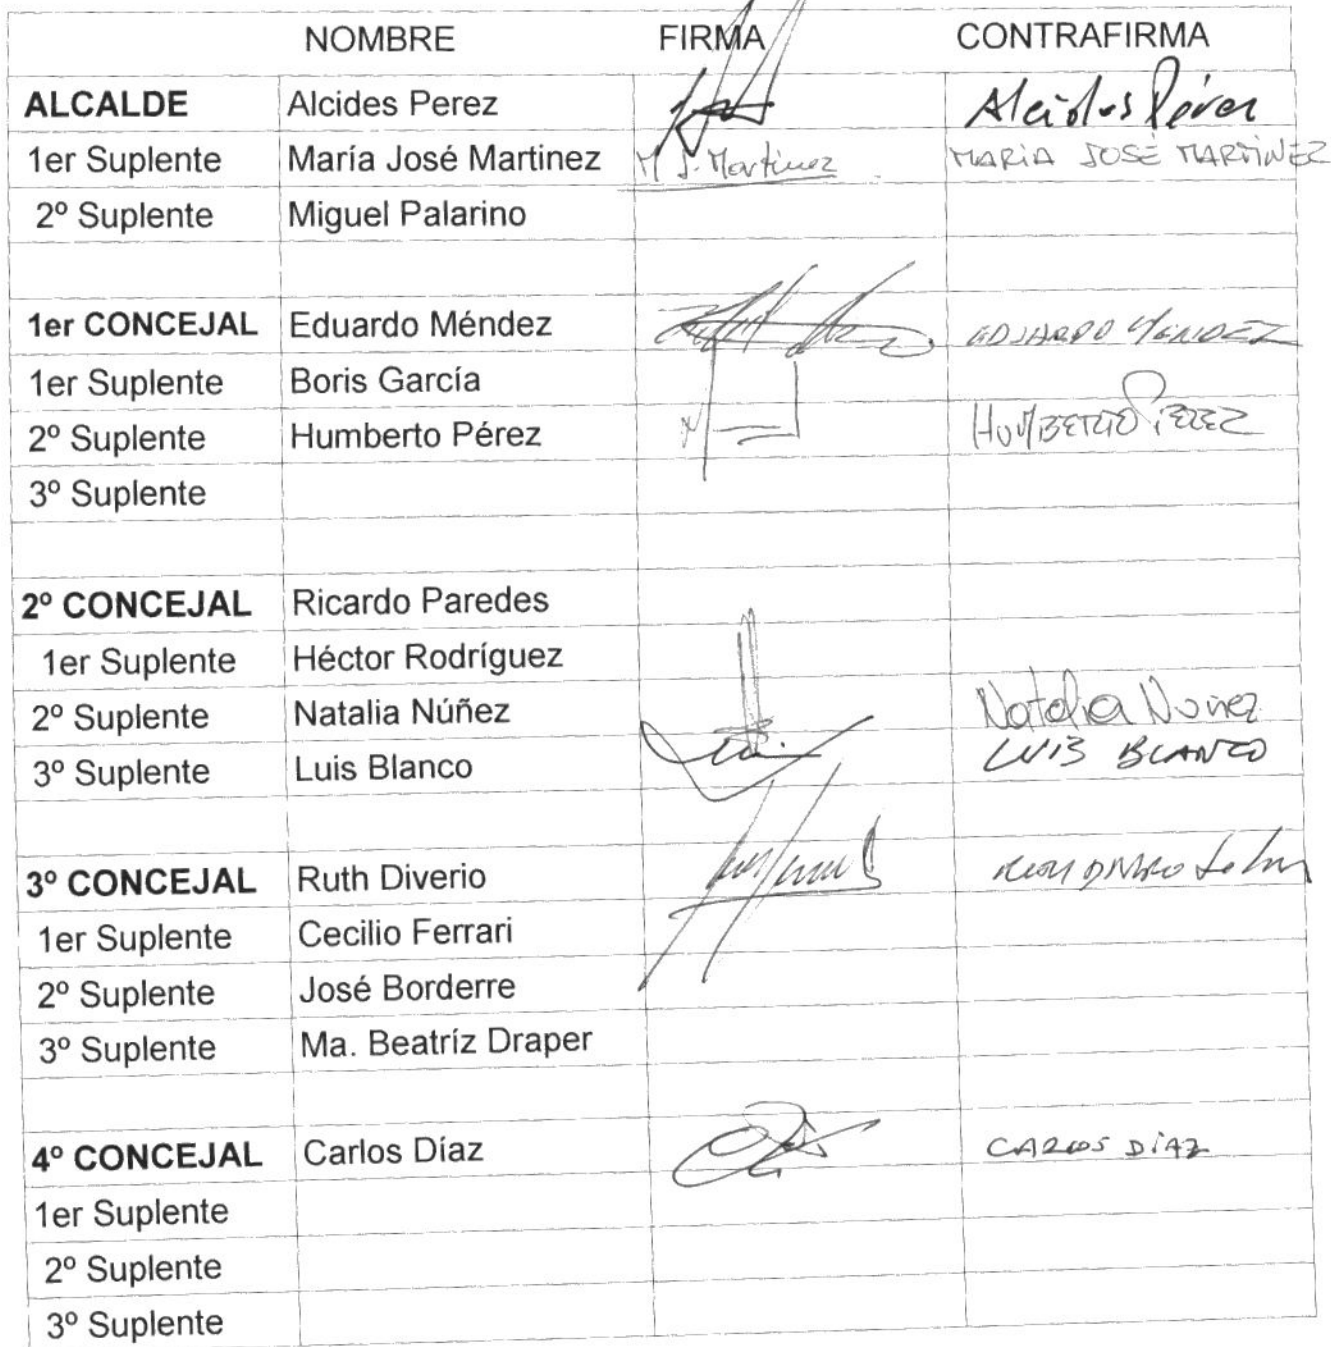 NOMBRE FIRMA CONTRAFIRMA
ALCALDE Alcides Perez Alcides Pérez
1er Suplente María José Martinez M J. Martinez MARIA JOSÉ MARTINEZ
2º Suplente Miguel Palarino
1er CONCEJAL Eduardo Méndez EDUARDO MENDEZ
1er Suplente Boris García
2º Suplente Humberto Pérez HUMBERTO PEREZ
3º Suplente
2º CONCEJAL Ricardo Paredes
1er Suplente Héctor Rodríguez
2º Suplente Natalia Núñez Natalia Nuñez
3º Suplente Luis Blanco LUIS BLANCO
3º CONCEJAL Ruth Diverio
1er Suplente Cecilio Ferrari
2º Suplente José Borderre
3º Suplente Ma. Beatríz Draper
4º CONCEJAL Carlos Díaz CARLOS DÍAZ
1er Suplente
2º Suplente
3º Suplente